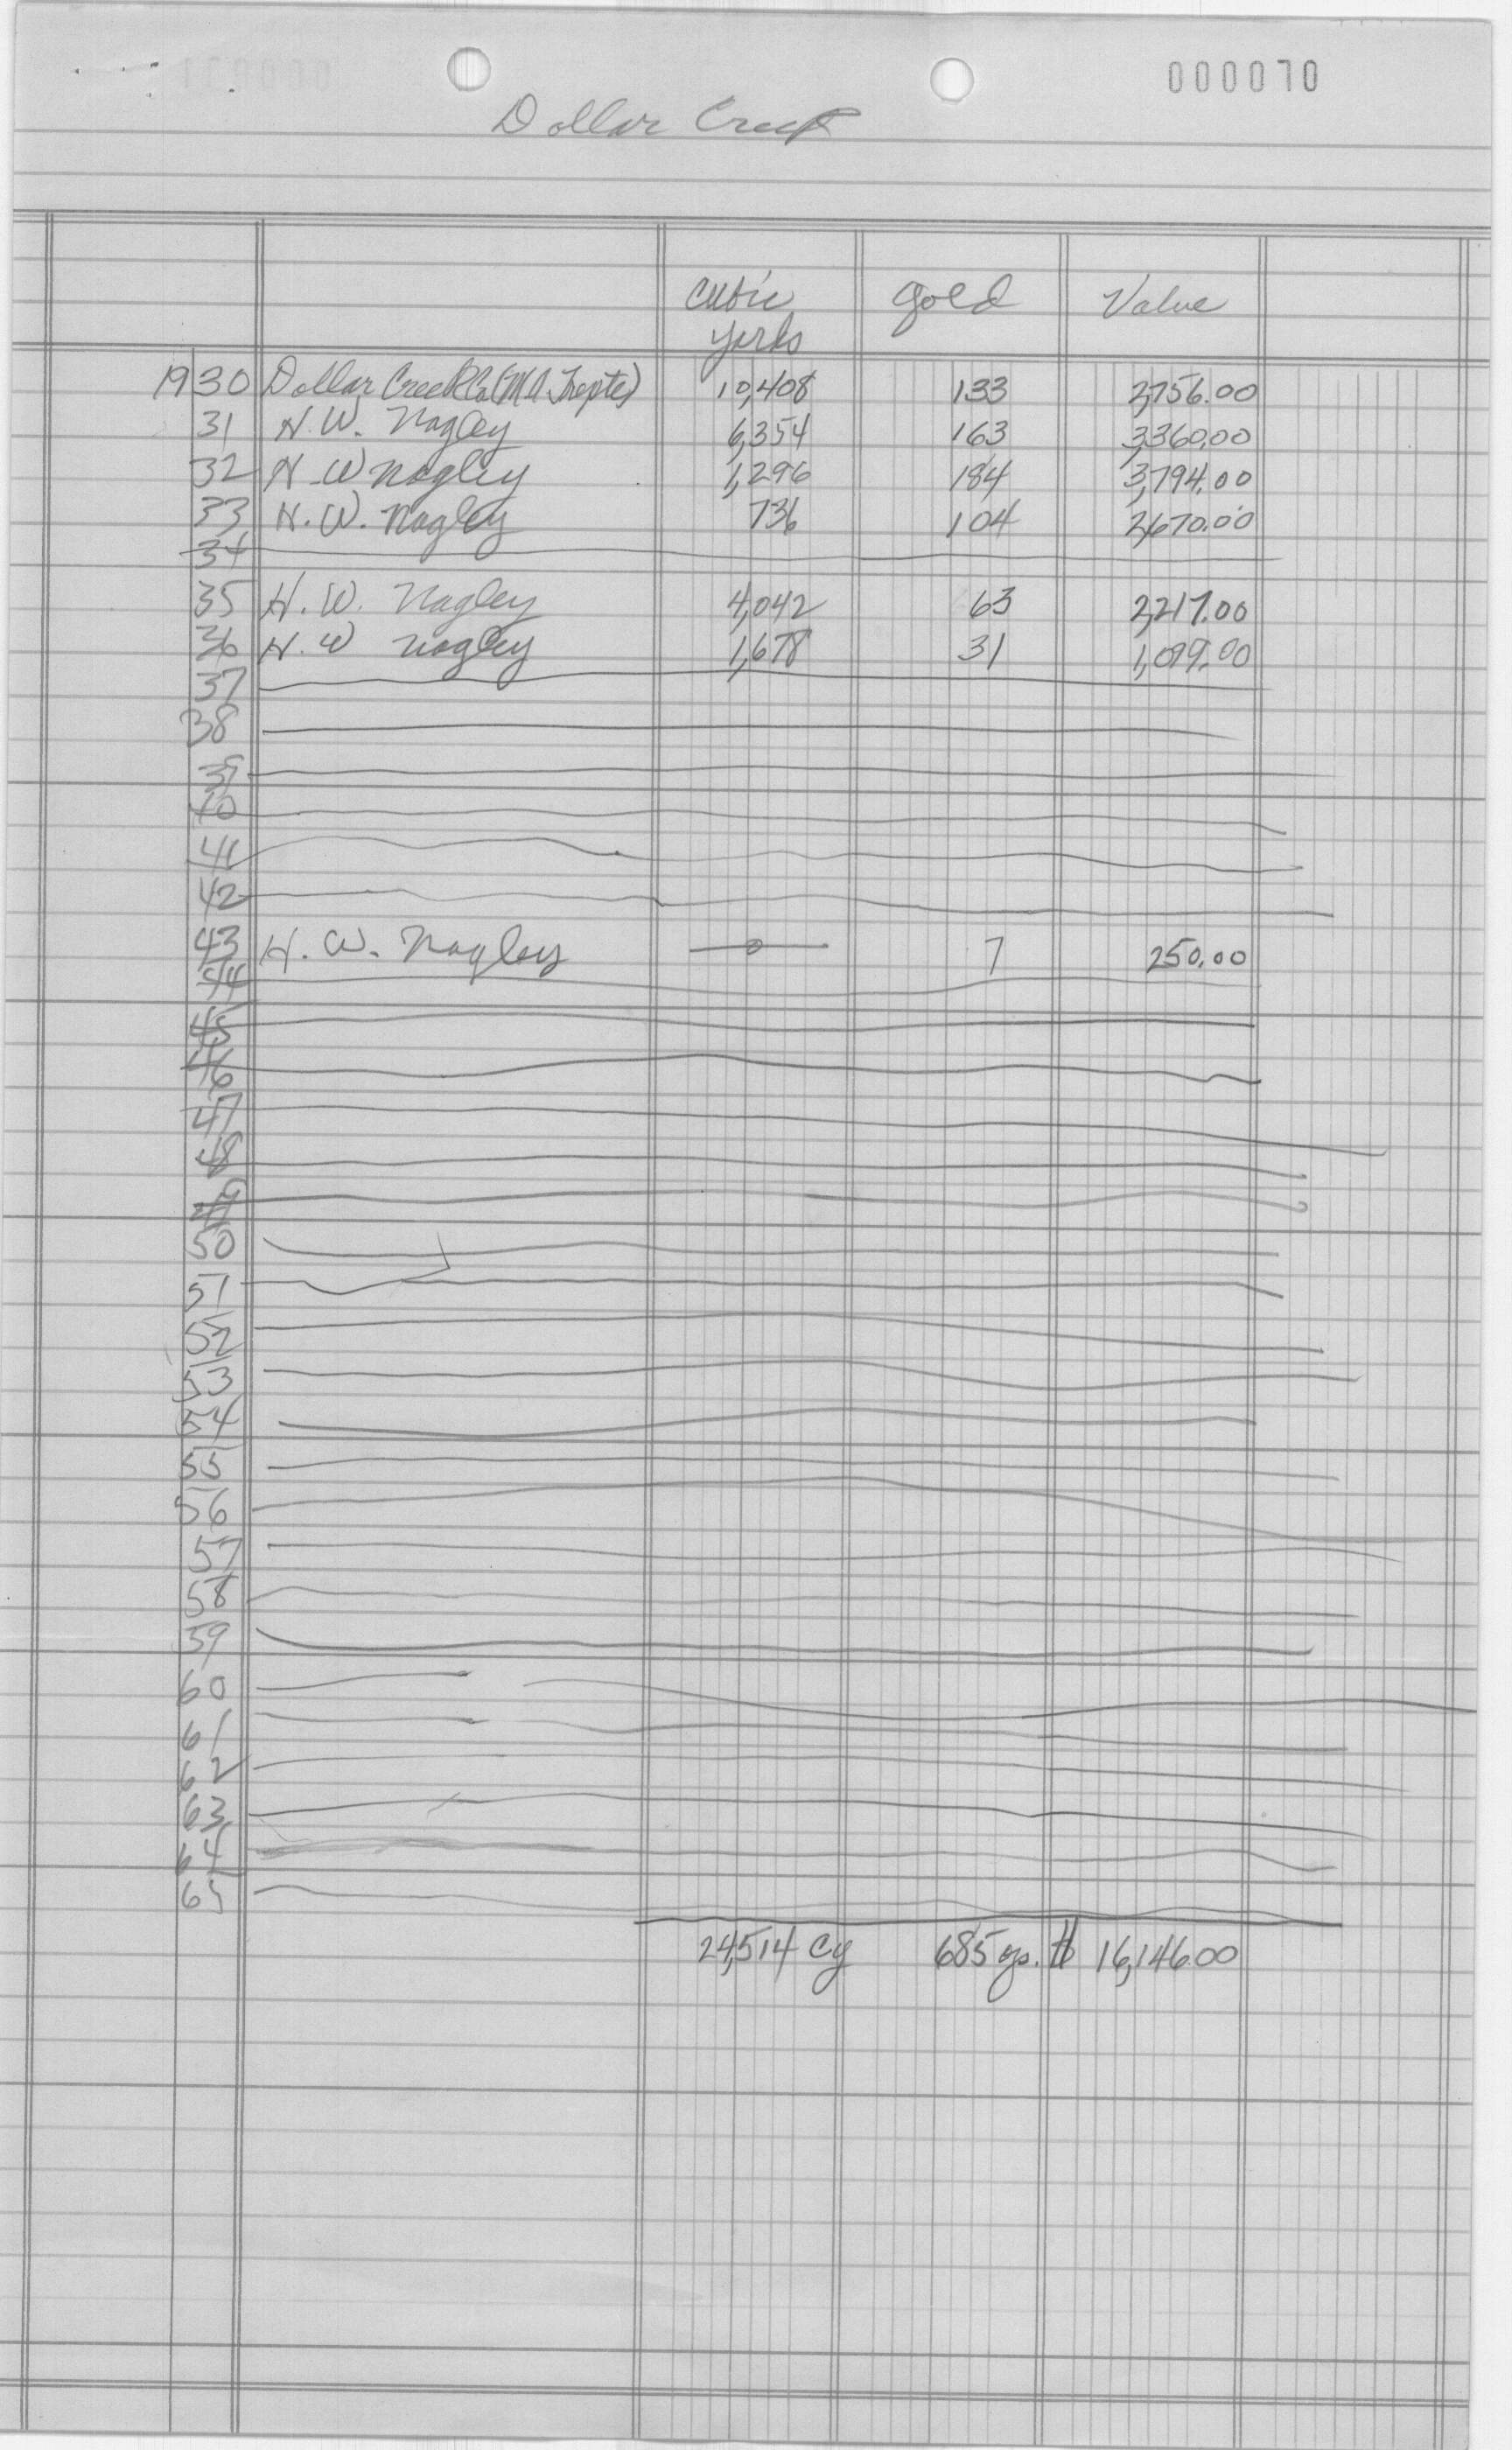 000070
Dollar Creek
cubic yards gold Value
1930 Dollar Creek Co (M A Trepte) 10,408 133 2,756.00
31 H. W. Nagley 6,354 163 3,360.00
32 H W Nagley 1,296 184 3,794.00
33 H. W. Nagley 736 104 2,670.00
34
35 H. W. Nagley 4,042 63 2,217.00
36 H. W Nagley 1,678 31 1,099.00
37
38
39
40
41
42
43 H. W. Nagley 0 7 250.00
44
45
46
47
48
49
50
51
52
53
54
55
56
57
58
59
60
61
62
63
64
65
24,514 cy 685 ozs. $ 16,146.00